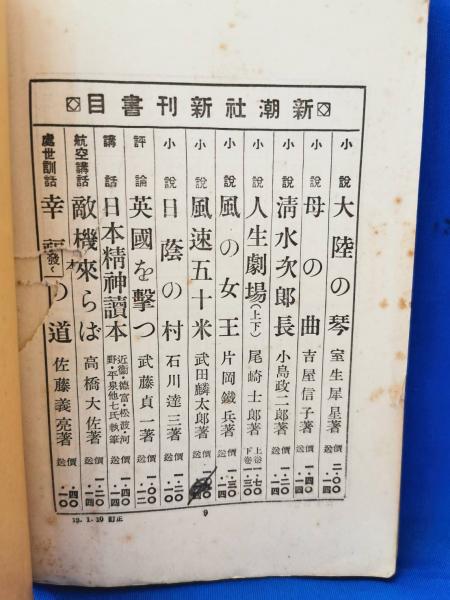 新潮社新刊書目
小說 大陸の琴 室生犀星著 價二・〇〇 送・一四
小說 母の曲 吉屋信子著 價 送
小說 淸水次郎長 小島政二郎著 價一・二〇 送・一四
小說 人生劇場(上下) 尾崎士郎著 上卷一・七〇 下卷一・三〇
小說 風の女王 片岡鐵兵著 價一・三〇 送・一四
小說 風速五十米 武田麟太郎著 價 送
小說 日蔭の村 石川達三著 價 送
評論 英國を擊つ 武藤貞一著 價一・〇〇 送・一二
講話 日本精神讀本 近衞・德富・松波・河野・平泉他七氏執筆 價 送・一四
航空講話 敵機來らば 高橋大佐著 價一・二〇 送・一〇
處世訓話 幸 の道 佐藤義亮著 價 送・一〇
發く
9
12. 1. 20 訂正